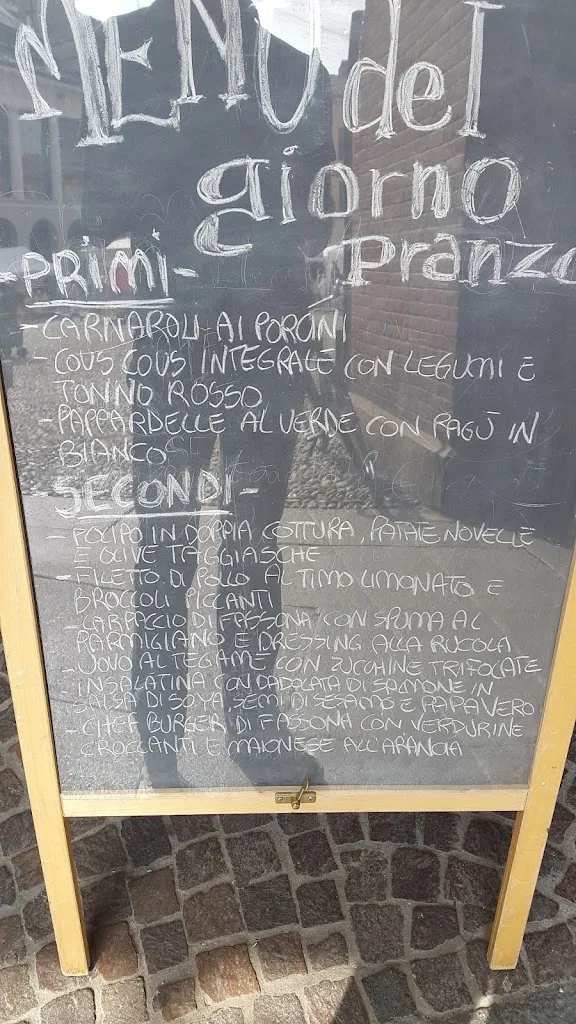 MENU del
giorno
Pranzo
-PRIMI-
-CARNAROLI AI PORCINI
-COUS COUS INTEGRALE CON LEGUMI E
TONNO ROSSO
-PAPPARDELLE AL VERDE CON RAGÙ IN
BIANCO
SECONDI-
-POLIPO IN DOPPIA COTTURA, PATATE NOVELLE
E OLIVE TAGGIASCHE
-FILETTO DI POLLO AL TIMO LIMONATO E
BROCCOLI PICCANTI
-CARPACCIO DI FASSONA CON SPUMA AL
PARMIGIANO E DRESSING ALLA RUCOLA
-UOVO AL TEGAME CON ZUCCHINE TRIFOLATE
-INSALATINA CON DADOLATA DI SALMONE IN
SALSA DI SOYA SEMI DI SESAMO E PAPAVERO
-CHEF BURGER DI FASSONA CON VERDURINE
CROCCANTI E MAIONESE ALL'ARANCIA